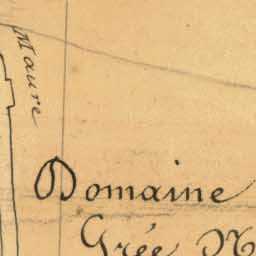 Maure
Domaine
Grée